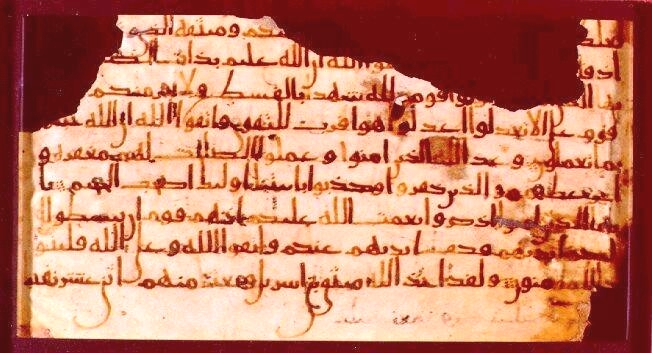 عليكم وميثقه الذي
اذ قلتم وا الله ان الله عليم بذات
يها لله شهدا بالقسط ولا يجرمنكم
قوم على الا تعدلوا اعدلوا هو اقرب للتقوى واتقوا الله ان الله
بما تعملون وعد الله الذين امنوا وعملوا الصلحت لهم مغفرة و
اجر عظيم والذين كفروا وكذبوا بايتنا اوليك اصحب الجحيم يا
يها الذين امنوا اذكروا نعمت الله عليكم اذ هم قوم ان يبسطوا ا
ليكم ايديهم فكف ايديهم عنكم واتقوا الله وعلى الله فليتو
كل المومنون ولقد اخذ الله ميثق بني اسريل وبعثنا منهم اثني عشر نقيبا